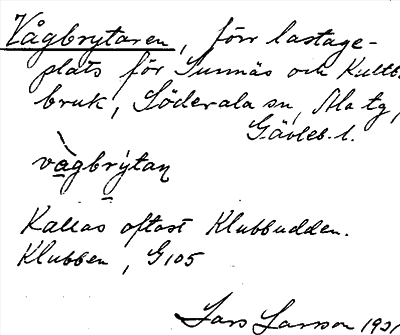 Vågbrytaren, förr lastage-
plats för Sunnäs och Kultb.
bruk, Söderala sn, Ala tg,
Gävleb. l.
vågbrýtaɳ
Kallas oftast Klubbudden.
Klubben, G 105
Lars Larsson